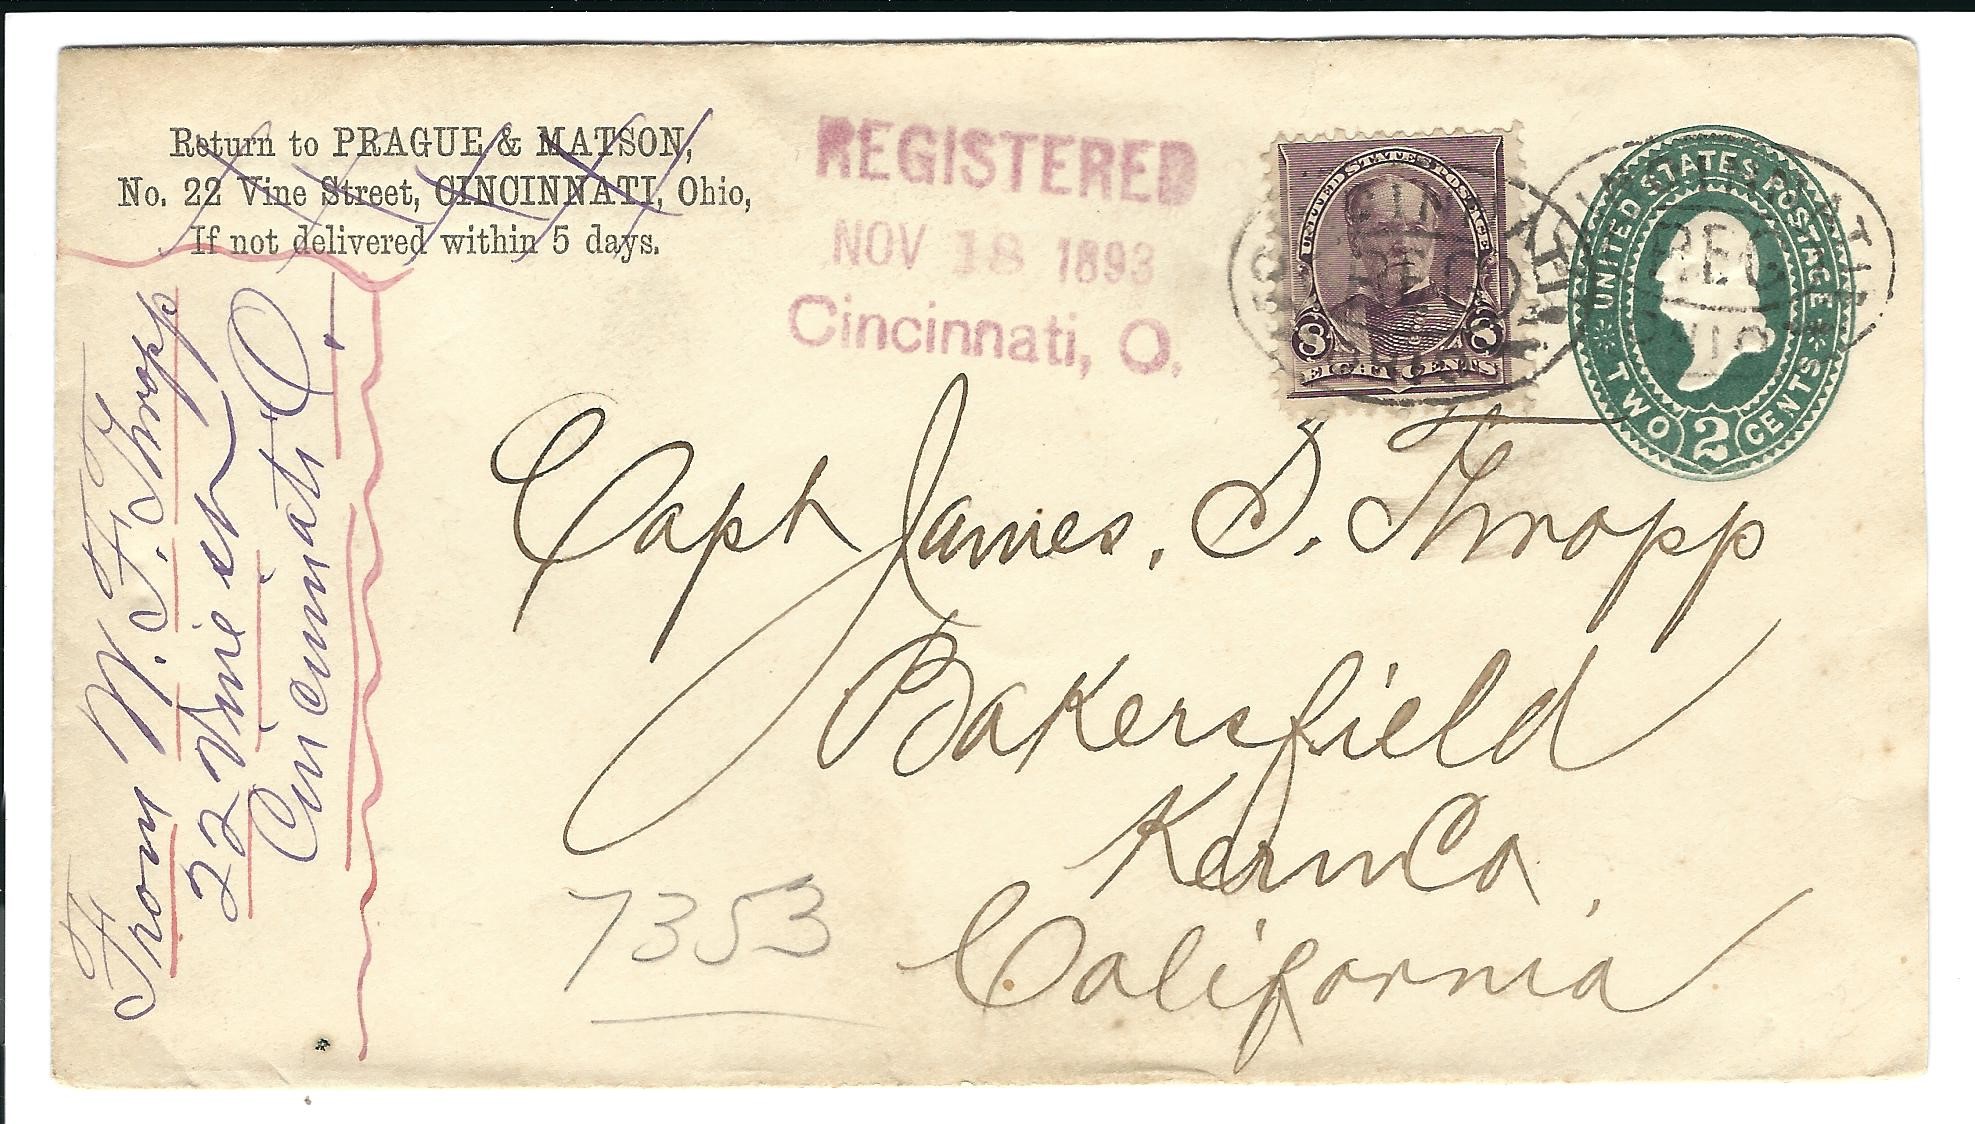 Return to PRAGUE & MATSON,
No. 22 Vine Street, CINCINNATI, Ohio,
If not delivered within 5 days.
REGISTERED
NOV 18 1893
Cincinnati, O.
UNITED STATES POSTAGE
8 8
EIGHT CENTS
UNITED STATES POSTAGE
TWO 2 CENTS
REG
From W. F. Thropp
22 Vine st
Cincinnati O.
Capt James. S. Thropp
Bakersfield
Kern Co
California
7353